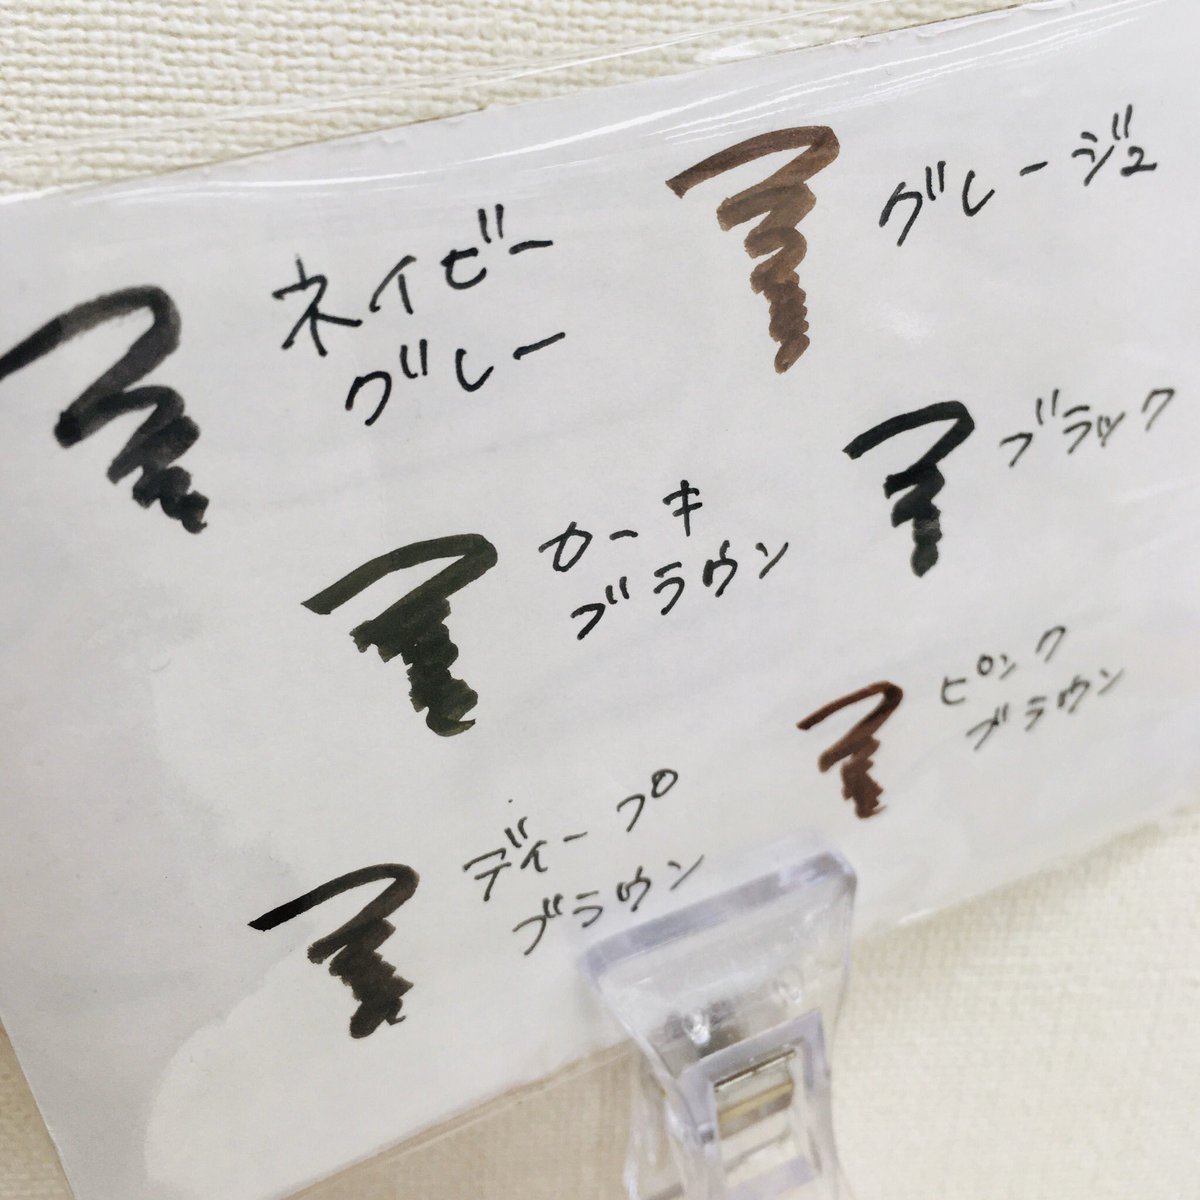 ネイビー
グレー
グレージュ
カーキ
ブラウン
ブラック
ディープ
ブラウン
ピンク
ブラウン